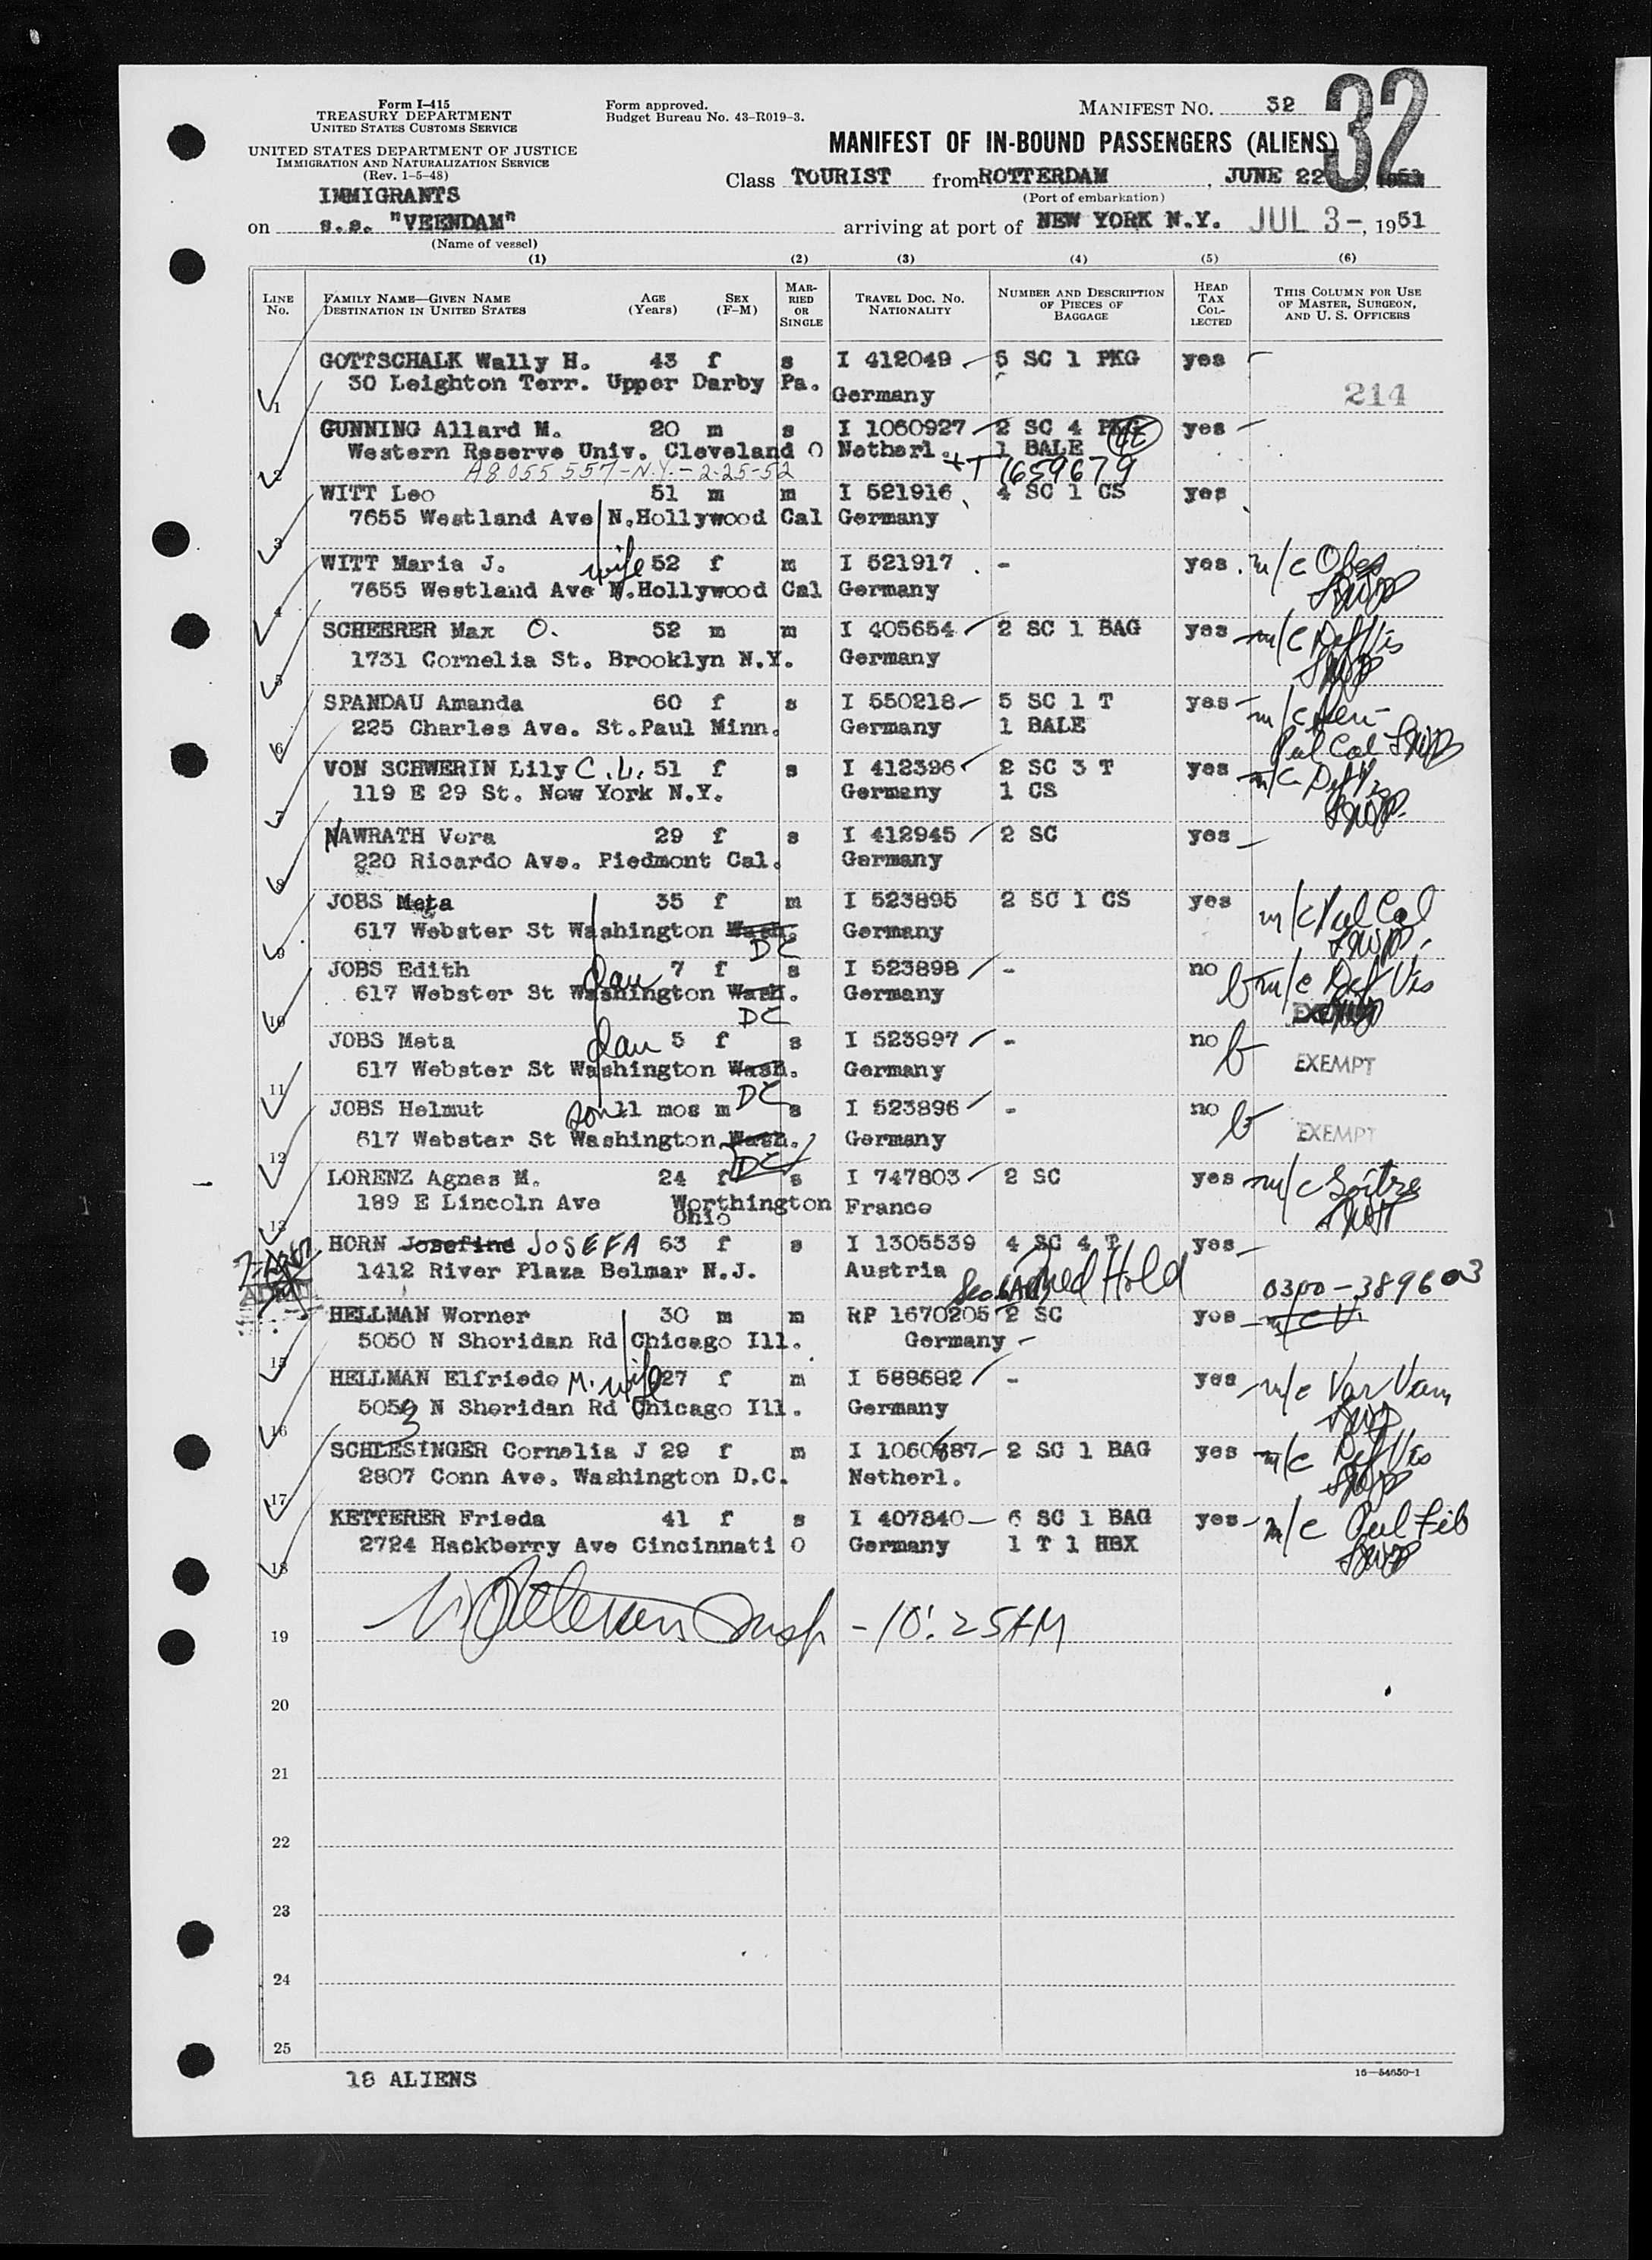 Form I-415
TREASURY DEPARTMENT
UNITED STATES CUSTOMS SERVICE
UNITED STATES DEPARTMENT OF JUSTICE
IMMIGRATION AND NATURALIZATION SERVICE
(Rev. 1-5-48)
Form approved.
Budget Bureau No. 43-R019-3.
MANIFEST NO. 32
32
MANIFEST OF IN-BOUND PASSENGERS (ALIENS)
Class TOURIST from ROTTERDAM, JUNE 22, 1951
(Port of embarkation)
IMMIGRANTS
on s.s. "VEENDAM" arriving at port of NEW YORK N.Y. JUL 3-, 1951
(Name of vessel)
(1) (2) (3) (4) (5) (6)
LINE No. FAMILY NAME—GIVEN NAME DESTINATION IN UNITED STATES AGE (Years) SEX (F-M) MARRIED OR SINGLE TRAVEL DOC. NO. NATIONALITY NUMBER AND DESCRIPTION OF PIECES OF BAGGAGE HEAD TAX COLLECTED THIS COLUMN FOR USE OF MASTER, SURGEON, AND U. S. OFFICERS
GOTTSCHALK Wally H. 43 f s I 412049 5 SC 1 PKG yes
1 30 Leighton Terr. Upper Darby Pa. Germany 214
GUNNING Allard M. 20 m s I 1060927 2 SC 4 PKG yes
Western Reserve Univ. Cleveland O Netherl. 1 BALE
2 A8 055 557-N.Y.-2-25-52 +T 1659679
WITT Leo 51 m m I 521916 4 SC 1 CS yes
3 7655 Westland Ave N.Hollywood Cal Germany
WITT Maria J. wife 52 f m I 521917 - yes m/c Obes
4 7655 Westland Ave N.Hollywood Cal Germany
SCHEERER Max O. 52 m m I 405654 2 SC 1 BAG yes m/c Def Vis
5 1731 Cornelia St. Brooklyn N.Y. Germany
SPANDAU Amanda 60 f s I 550218 5 SC 1 T yes m/c
6 225 Charles Ave. St.Paul Minn. Germany 1 BALE Pul Cal
VON SCHWERIN Lily C.L. 51 f s I 412396 2 SC 3 T yes m/c Def Vis
7 119 E 29 St. New York N.Y. Germany 1 CS
NAWRATH Vera 29 f s I 412945 2 SC yes
8 220 Ricardo Ave. Piedmont Cal. Germany
JOBS Meta 35 f m I 523895 2 SC 1 CS yes m/c Pul Cal
9 617 Webster St Washington Wash. DC Germany
JOBS Edith dau 7 f s I 523898 - no b m/c Def Vis
10 617 Webster St Washington Wash. DC Germany EXEMPT
JOBS Meta dau 5 f s I 523897 - no b EXEMPT
11 617 Webster St Washington Wash. DC Germany
JOBS Helmut son 11 mos m s I 523896 - no b EXEMPT
12 617 Webster St Washington Wash. DC Germany
LORENZ Agnes M. 24 f s I 747803 2 SC yes m/c Goitre
13 189 E Lincoln Ave Worthington Ohio France
HORN Josefine JOSEFA 63 f s I 1305539 4 SC 4 T yes
1412 River Plaza Belmar N.J. Austria Med Hold 0300-389603
HELLMAN Werner 30 m m RP 1670205 2 SC yes m/c V
15 5050 N Sheridan Rd Chicago Ill. Germany
HELLMAN Elfriede M. wife 27 f m I 688682 - yes m/c Var Vein
16 5050 3 N Sheridan Rd Chicago Ill. Germany
SCHLESINGER Cornelia J 29 f m I 1060887 2 SC 1 BAG yes m/c Def Vis
17 2807 Conn Ave. Washington D.C. Netherl.
KETTERER Frieda 41 f s I 407840 6 SC 1 BAG yes m/c Pul Fib
18 2724 Hackberry Ave Cincinnati O Germany 1 T 1 HBX
19 Insp - 10:25AM
20
21
22
23
24
25
18 ALIENS
16—54650-1